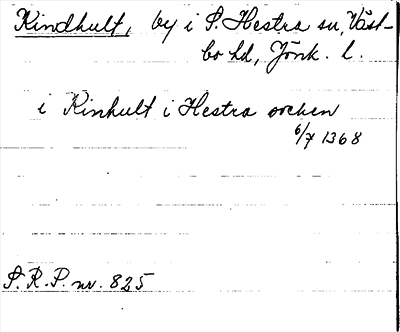 Kindhult, by i S. Hestra sn, Väst-
bo hd, Jönk. l.
i Kinhult i Hestra sochen
6/7 1368
S. R. P. nr. 825